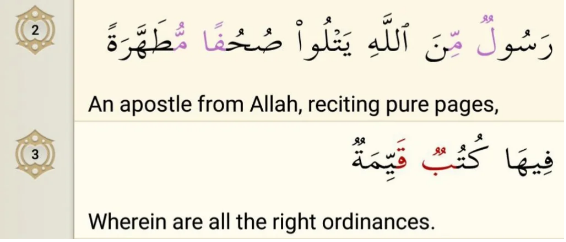 2
رَسُولٌ مِّنَ ٱللَّهِ يَتْلُوا۟ صُحُفًا مُّطَهَّرَةً
An apostle from Allah, reciting pure pages,
3
فِيهَا كُتُبٌ قَيِّمَةٌ
Wherein are all the right ordinances.